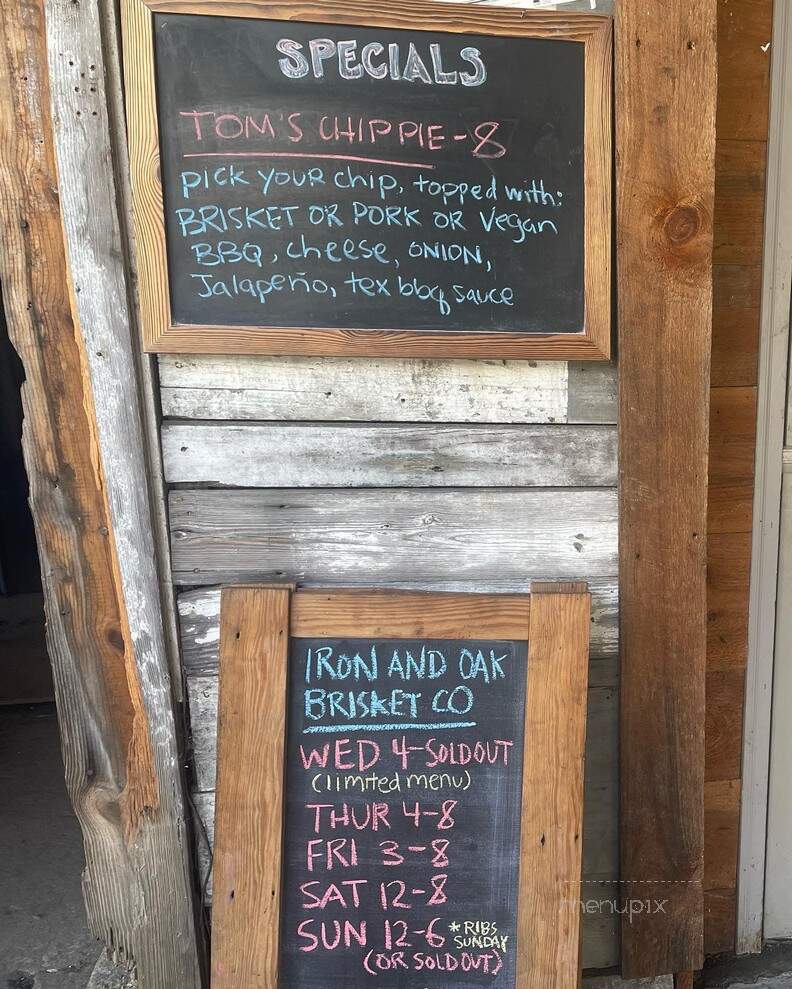 SPECIALS
TOM'S CHIPPIE - 8
pick your chip, topped with:
BRISKET OR PORK OR Vegan
BBQ, cheese, ONION,
Jalapeño, tex bbq sauce
IRON AND OAK
BRISKET CO
WED 4-SOLD OUT
(limited menu)
THUR 4-8
FRI 3-8
SAT 12-8
SUN 12-6 *RIBS
SUNDAY
(OR SOLD OUT)
menupix